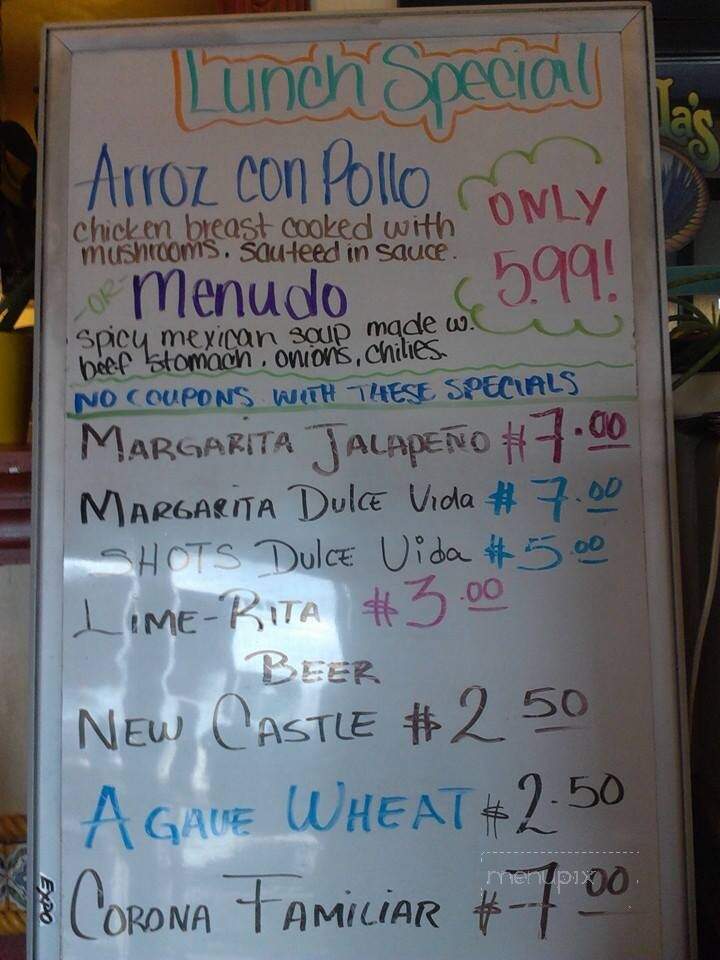 Lunch Special
Arroz con Pollo
chicken breast cooked with
mushrooms. sauteed in sauce.
ONLY
5.99!
-OR- Menudo
spicy mexican soup made w.
beef stomach, onions, chilies.
NO COUPONS WITH THESE SPECIALS
MARGARITA JALAPEÑO $7.00
MARGARITA DULCE Vida $7.00
SHOTS DULCE Vida $5.00
LIME-RITA $3.00
BEER
NEW CASTLE $2 50
AGAVE WHEAT $2.50
CORONA FAMILIAR $7 00
menupix
EXPO
la's